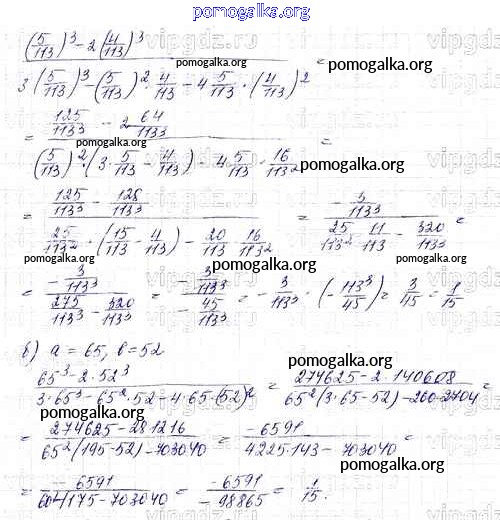 pomogalka.org
(5/113)³ - 2(4/113)³
pomogalka.org
3(5/113)³ - (5/113)² · 4/113 - 4 5/113 · (4/113)² =
pomogalka.org
= 125/113³ - 2 64/113³
pomogalka.org
(5/113)² · (3 · 5/113 - 4/113) - 4 5/113 · 16/113² =
pomogalka.org
= 125/113³ - 128/113³
25/113² · (15/113 - 4/113) - 20/113 · 16/113² = - 3/113³
25/113² · 11/113 - 320/113³ =
pomogalka.org
pomogalka.org
= - 3/113³
275/113³ - 320/113³ = - 3/113³
- 45/113³ = - 3/113³ · (- 113³/45) = 3/45 = 1/15
в) a = 65, b = 52
pomogalka.org
65³ - 2 · 52³
3 · 65³ - 65² · 52 - 4 · 65 · (52)² = 274625 - 2 · 140608
65² (3 · 65 - 52) - 260 · 2704 =
pomogalka.org
= 274625 - 281216
65² (195 - 52) - 703040 = - 6591
4225 · 143 - 703040 =
pomogalka.org
= - 6591
604175 - 703040 = - 6591
- 98865 = 1/15.
pomogalka.org